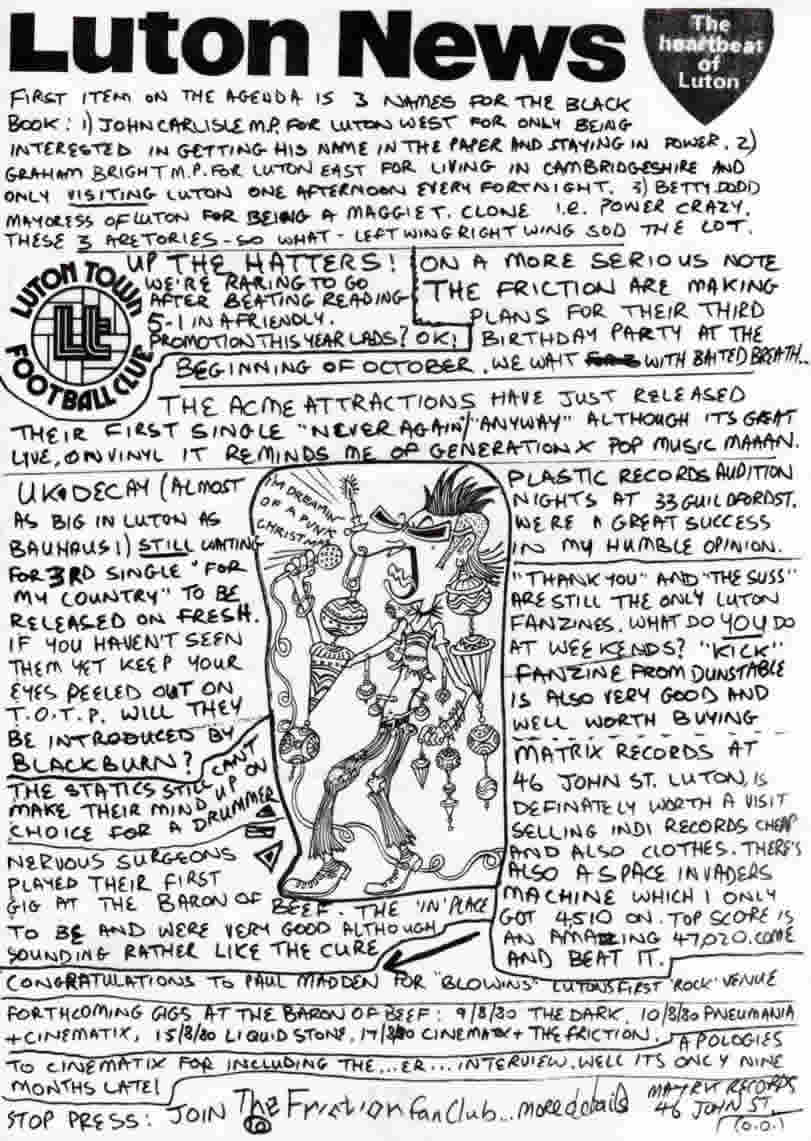 Luton News
The
heartbeat
of
Luton
FIRST ITEM ON THE AGENDA IS 3 NAMES FOR THE BLACK
BOOK: 1) JOHN CARLISLE M.P. FOR LUTON WEST FOR ONLY BEING
INTERESTED IN GETTING HIS NAME IN THE PAPER AND STAYING IN POWER. 2)
GRAHAM BRIGHT M.P. FOR LUTON EAST FOR LIVING IN CAMBRIDGESHIRE AND
ONLY VISITING LUTON ONE AFTERNOON EVERY FORTNIGHT. 3) BETTY DODD
MAYORESS OF LUTON FOR BEING A MAGGIE T. CLONE i.e. POWER CRAZY.
THESE 3 ARE TORIES - SO WHAT - LEFT WING RIGHT WING SOD THE LOT.
LUTON TOWN
FOOTBALL CLUB
Lt
UP THE HATTERS!
WE'RE RARING TO GO
AFTER BEATING READING
5-1 IN A FRIENDLY.
PROMOTION THIS YEAR LADS? OK!
ON A MORE SERIOUS NOTE
THE FRICTION ARE MAKING
PLANS FOR THEIR THIRD
BIRTHDAY PARTY AT THE
BEGINNING OF OCTOBER. WE WAIT WITH BAITED BREATH...
THE ACME ATTRACTIONS HAVE JUST RELEASED
THEIR FIRST SINGLE "NEVER AGAIN"/"ANYWAY" ALTHOUGH ITS GREAT
LIVE, ON VINYL IT REMINDS ME OF GENERATION X POP MUSIC MAAAN.
UK DECAY (ALMOST
AS BIG IN LUTON AS
BAUHAUS!) STILL WAITING
FOR 3RD SINGLE "FOR
MY COUNTRY" TO BE
RELEASED ON FRESH.
IF YOU HAVEN'T SEEN
THEM YET KEEP YOUR
EYES PEELED OUT ON
T.O.T.P. WILL THEY
BE INTRODUCED BY
BLACKBURN?
THE STATICS STILL CANT
MAKE THEIR MIND UP ON
CHOICE FOR A DRUMMER
NERVOUS SURGEONS
PLAYED THEIR FIRST
GIG AT THE BARON OF BEEF. THE 'IN' PLACE
TO BE AND WERE VERY GOOD ALTHOUGH
SOUNDING RATHER LIKE THE CURE
I'M DREAMIN'
OF A PUNK
CHRISTMAS
PLASTIC RECORDS AUDITION
NIGHTS AT 33 GUILDFORD ST.
WERE A GREAT SUCCESS
IN MY HUMBLE OPINION.
"THANK YOU" AND "THE SUSS"
ARE STILL THE ONLY LUTON
FANZINES. WHAT DO YOU DO
AT WEEKENDS? "KICK"
FANZINE FROM DUNSTABLE
IS ALSO VERY GOOD AND
WELL WORTH BUYING
MATRIX RECORDS AT
46 JOHN ST. LUTON, IS
DEFINATELY WORTH A VISIT
SELLING INDI RECORDS CHEAP
AND ALSO CLOTHES. THERE'S
ALSO A SPACE INVADERS
MACHINE WHICH I ONLY
GOT 4,510 ON. TOP SCORE IS
AN AMAZING 47,020. COME
AND BEAT IT.
CONGRATULATIONS TO PAUL MADDEN FOR "BLOWINS" LUTONS FIRST 'ROCK' VENUE
FORTHCOMING GIGS AT THE BARON OF BEEF: 9/8/80 THE DARK, 10/8/80 PNEUMANIA
+ CINEMATIX, 15/8/80 LIQUID STONE, 17/8/80 CINEMATIX + THE FRICTION. APOLOGIES
TO CINEMATIX FOR INCLUDING THE...ER...INTERVIEW. WELL ITS ONLY NINE
MONTHS LATE!
STOP PRESS: JOIN The Friction fan Club... more details MATRIX RECORDS
46 JOHN ST.
(O.O.)